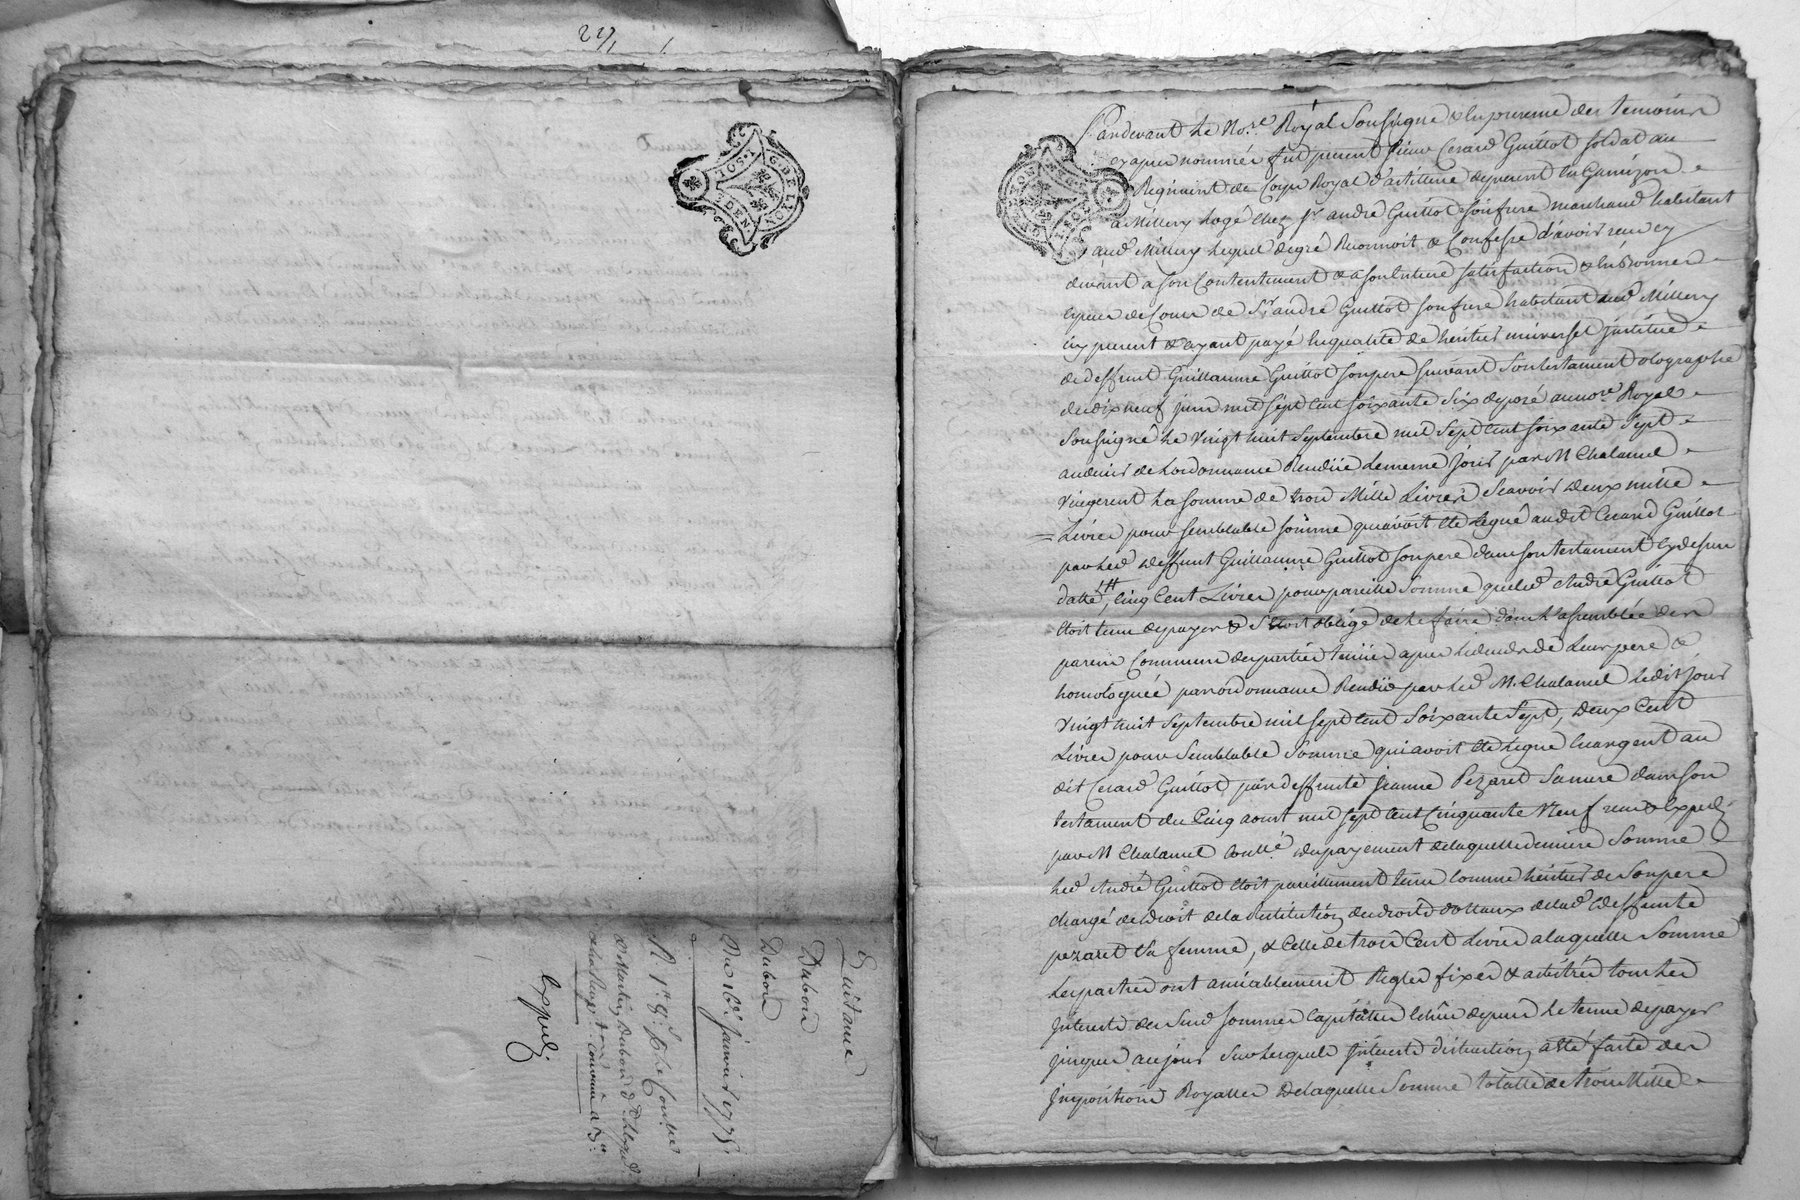 22/1
G. DE LION
1. SOL.
DEN.
Quittance
Dubois
Dubois
Du 16e. janvier 1775
expedi.
Pardevant le No.re Royal Soussigné & en presence des temoins
cy apres nommés fut present sieur Cesard Guittot soldat au
Regiment de Corps Royal d'artillerie de present en Garnizon
a Millery logé chez Sr. andré Guittot son frere marchand habitant
aud. Millery lequel de gré Reconnoit & Confesse d'avoir reçu cy
devant a son Contentement & a son entiere satisfaction & en bonnes
especes de Cours de Sr. andré Guittot son frere habitant aud. Millery
icy present & ayant payé en qualité de heritier universel institué
de deffunt Guillaume Guittot son pere suivant son testament olographe
du dix neuf juin mil sept cent soixante six deposé au no.re Royal
Soussigné le vingt huit Septembre mil sept cent soixante sept
au desir de Lordonnance Rendüe le meme jour par M Chalamel
Viegerent la somme de trois Mille Livres Scavoir deux mille
Livres pour semblable somme qui avoit eté legué audit Cesard Guittot
par led. deffunt Guillaume Guittot son pere dans son testament cy dessus
datté, cinq Cent Livres pour pareille Somme que led. André Guittot
etoit tenu de payer & s'etoit obligé de le faire dans l'assemblée des
parens Communs des parties tenüe apres le deceds de Leur pere &
homologuée par ordonnance Rendüe par led. M. Chalamel ledit jour
vingt huit Septembre mil sept cent Soixante Sept, deux Cent
Livres pour Semblable Somme qui avoit eté legué en argent au
dit Cesard Guittot par deffunte Jeanne Pezaret Sa mere dans son
testament du Cinq aoust mil sept cent Cinquante Neuf reçu & expedi.
par M Chalamel du payement de laquelle derniere Somme
led. André Guittot etoit pareillement tenu comme heritier de Son pere
chargé de droit de la restitution des droits dottaux de lad. deffunte
pezaret Sa femme, & celle de trois Cent Livres a laquelle Somme
les parties ont amiablement Reglés fixés & arbitrés tous les
Interets des Susd. Sommes Capitalles echûs depuis le terme de payer
jusques au jour Sur lesquels Interets distraction a eté faite des
Impositions Royalles De laquelle Somme totalle de trois Mille